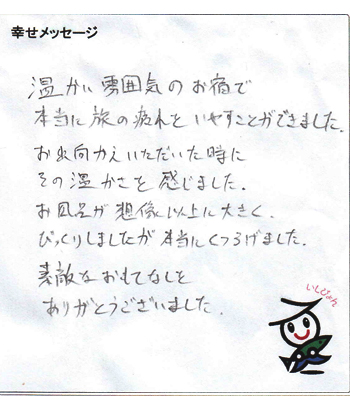 幸せメッセージ
温かい雰囲気のお宿で
本当に旅の疲れをいやすことができました。
お出向かえいただいた時に
その温かさを感じました。
お風呂が想像以上に大きく、
びっくりしましたが本当にくつろげました。
素敵なおもてなしを
ありがとうございました。